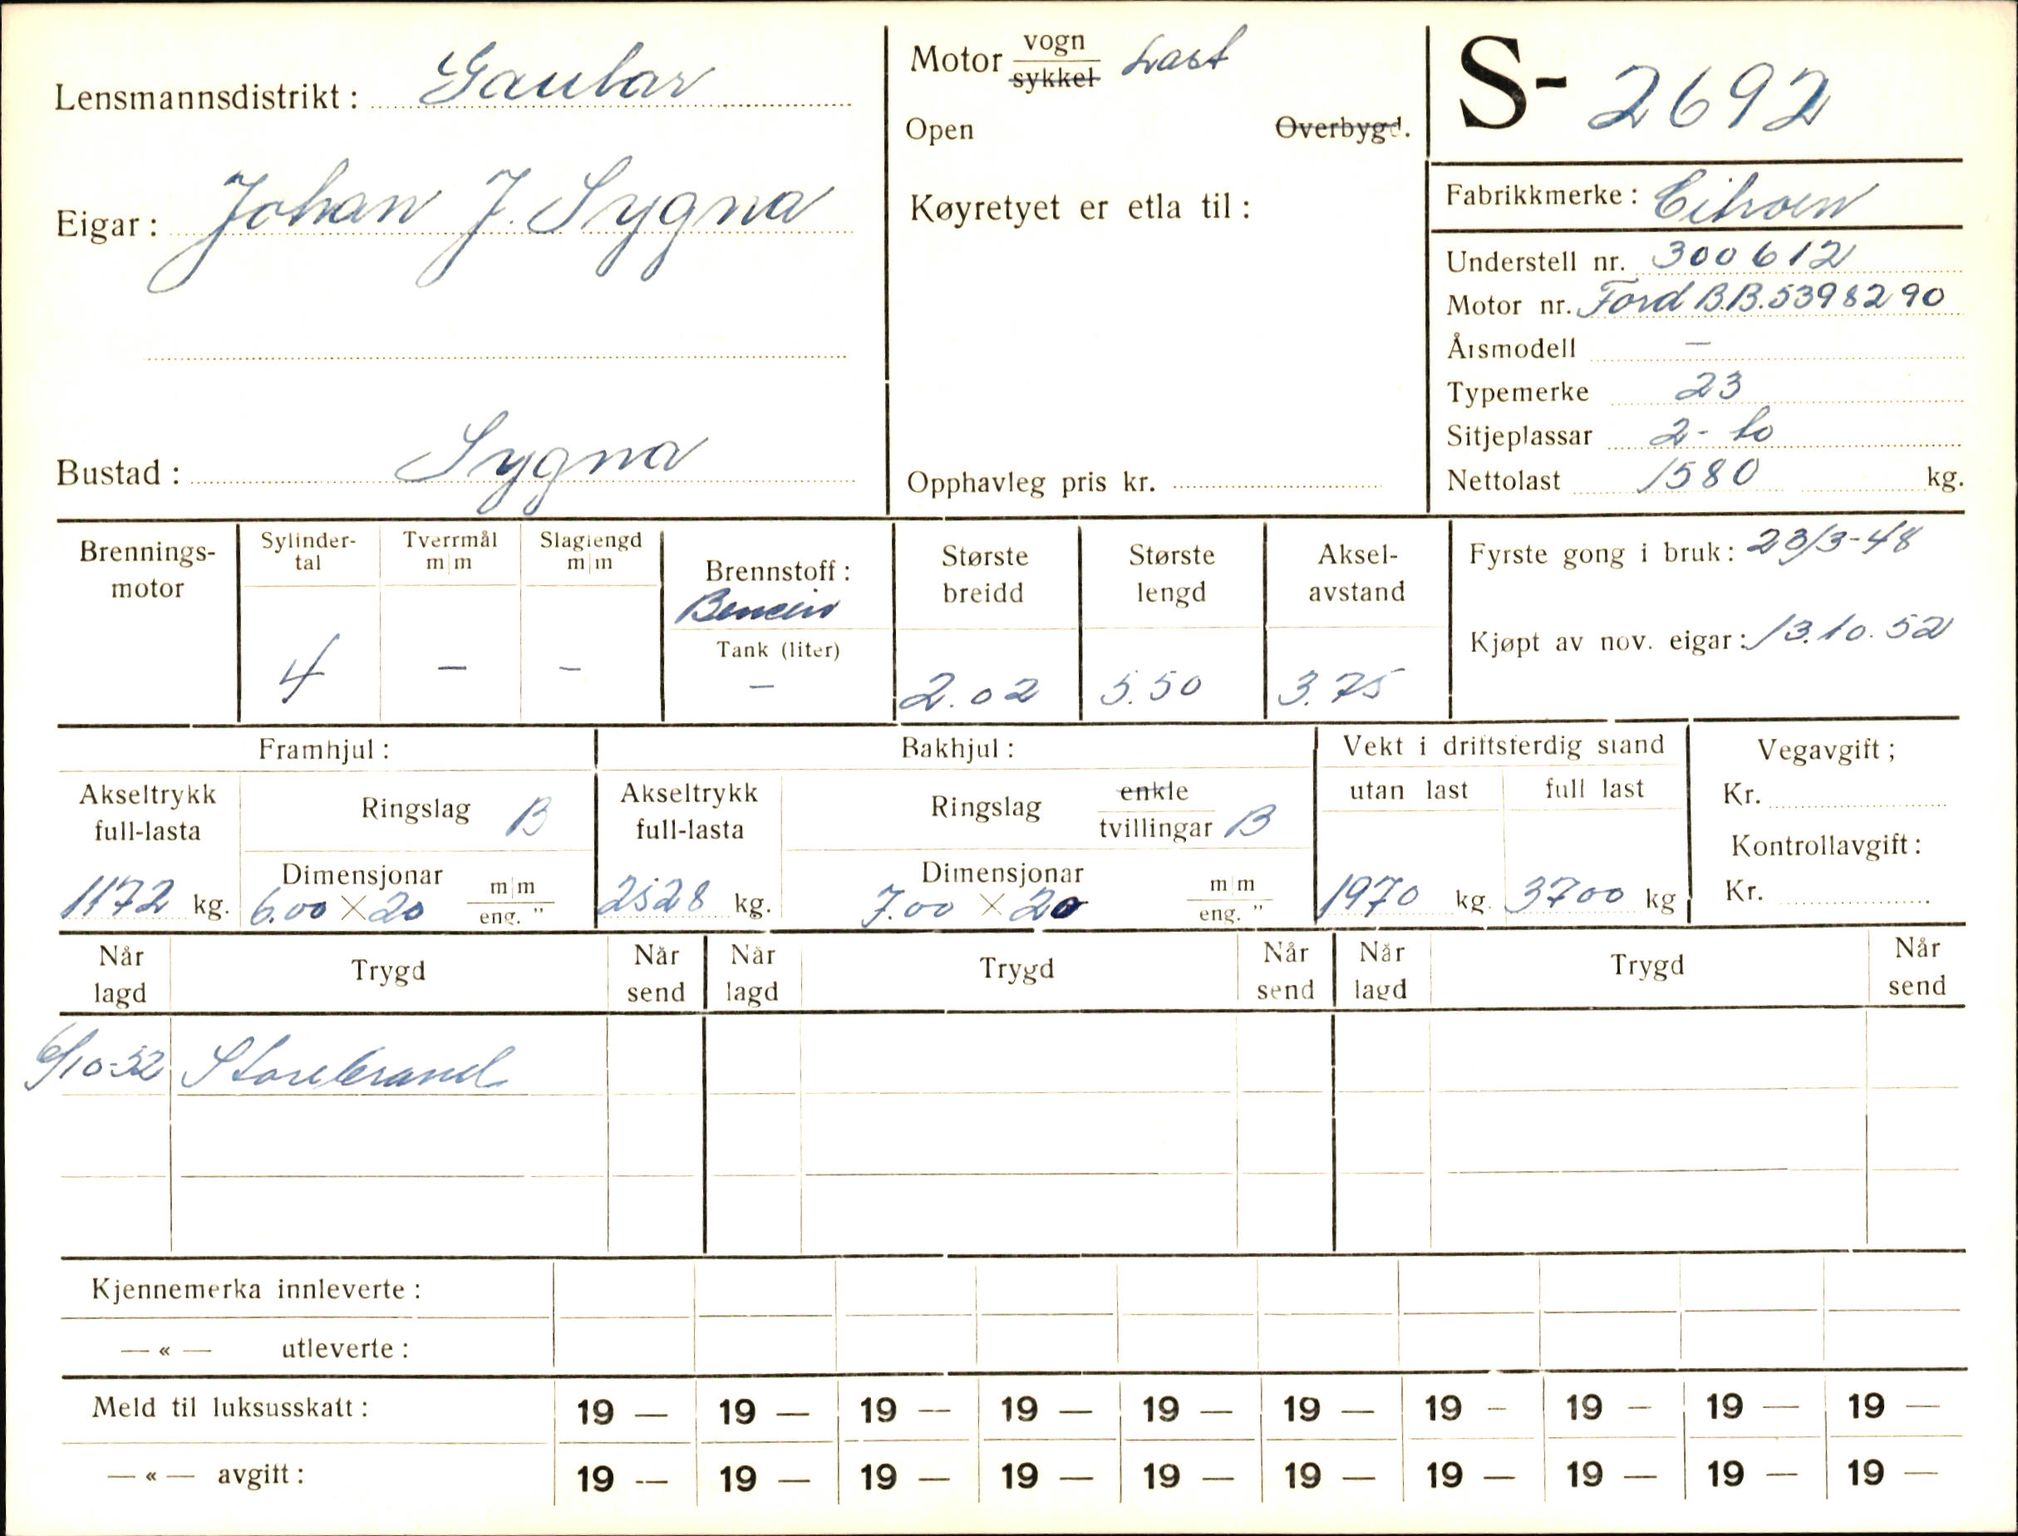 Lensmannsdistrikt: Gaular
Eigar: Johan J. Sygna
Bustad: Sygna
Motor vogn Last
sykkel
Open Overbygd.
Køyretyet er etla til:
Opphavleg pris kr.
S- 2692
Fabrikkmerke: Citroen
Understell nr. 300612
Motor nr. Ford B.B. 5398290
Årsmodell —
Typemerke 23
Sitjeplassar 2-to
Nettolast 1580 kg.
Brennings- Sylinder- Tverrmål Slaglengd Brennstoff: Største Største Aksel-
motor tal m|m m|m Bencin breidd lengd avstand
Tank (liter)
4 — — — 2.02 5.50 3.75
Fyrste gong i bruk: 23/3-48
Kjøpt av nov. eigar: 13.10.52
Framhjul: Bakhjul: Vekt i driftsferdig stand Vegavgift;
Akseltrykk Ringslag B Akseltrykk Ringslag enkle utan last full last Kr.
full-lasta full-lasta tvillingar B Kontrollavgift:
Dimensjonar m|m Dimensjonar m|m
1172 kg. 6.00 × 20 eng. " 2528 kg. 7.00 × 20 eng. " 1970 kg. 3700 kg Kr.
Når Trygd Når Når Trygd Når Når Trygd Når
lagd send lagd send lagd send
6/10-52 Storebrand
Kjennemerka innleverte:
— « — utleverte:
Meld til luksusskatt: 19 — 19 — 19 — 19 — 19 — 19 — 19 - 19 — 19 — 19 —
— « — avgift: 19 — 19 — 19 — 19 — 19 — 19 — 19 — 19 — 19 — 19 —